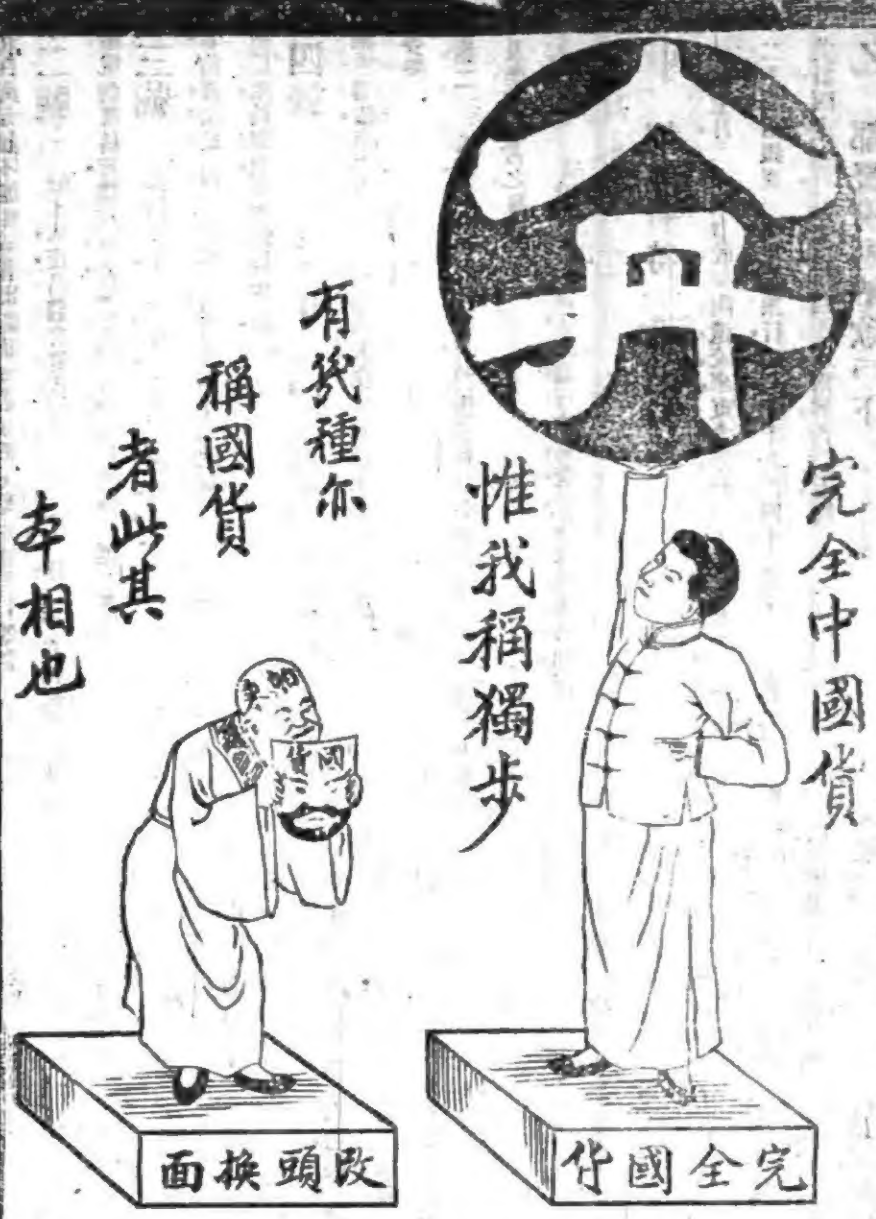 人丹
完全中國貨
惟我稱獨步
有幾種亦
稱國貨
者此其
本相也
國貨
完全國貨
改頭換面